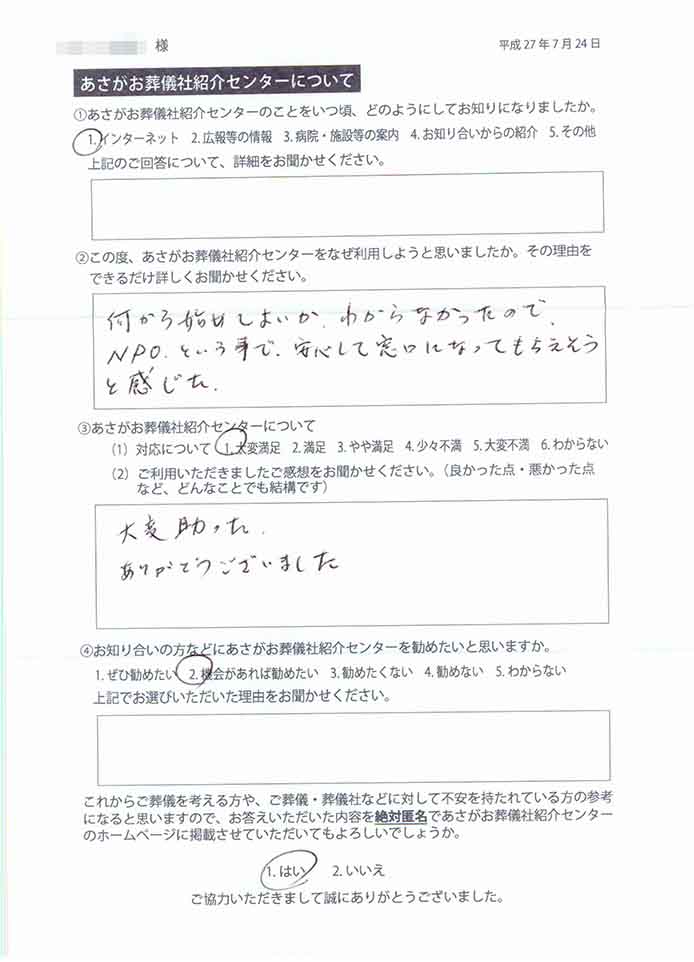 様
平成27年7月24日
あさがお葬儀社紹介センターについて
①あさがお葬儀社紹介センターのことをいつ頃、どのようにしてお知りになりましたか。
1.インターネット 2.広報等の情報 3.病院・施設等の案内 4.お知り合いからの紹介 5.その他
上記のご回答について、詳細をお聞かせください。
②この度、あさがお葬儀社紹介センターをなぜ利用しようと思いましたか。その理由を
できるだけ詳しくお聞かせください。
何から始めしよいか、わからなかったので、
NPO.という事で、安心して窓口になってもらえそう
と感じた.
③あさがお葬儀社紹介センターについて
（1）対応について 1.大変満足 2.満足 3.やや満足 4.少々不満 5.大変不満 6.わからない
（2）ご利用いただきましたご感想をお聞かせください。（良かった点・悪かった点
など、どんなことでも結構です）
大変助った.
ありがとうございました
④お知り合いの方などにあさがお葬儀社紹介センターを勧めたいと思いますか。
1.ぜひ勧めたい 2.機会があれば勧めたい 3.勧めたくない 4.勧めない 5.わからない
上記でお選びいただいた理由をお聞かせください。
これからご葬儀を考える方や、ご葬儀・葬儀社などに対して不安を持たれている方の参考
になると思いますので、お答えいただいた内容を絶対匿名であさがお葬儀社紹介センター
のホームページに掲載させていただいてもよろしいでしょうか。
1.はい 2.いいえ
ご協力いただきまして誠にありがとうございました。